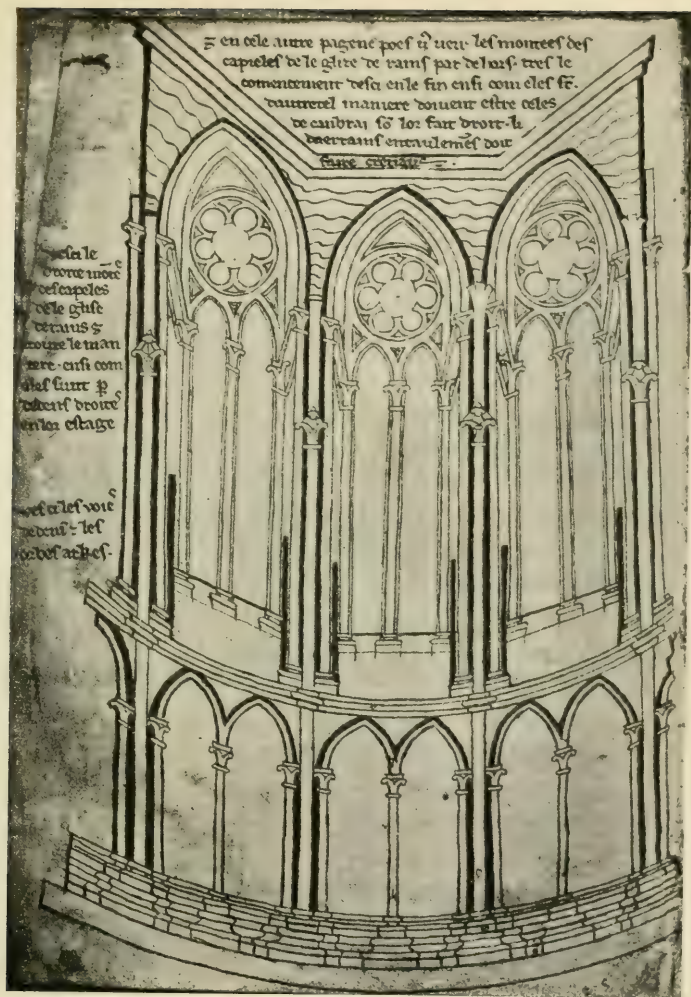 ⁊ en cele autre pagene poes ũ veir les montees des
capieles de le glize de rains par dehors. tres le
comencement desci en le fin ensi com eles st̃.
dautretel maniere doivent estre celes
de canbrai sõ lor fait droit. li
daerrains entaulemẽs doit
faire
Vesci le
droite mõte
des capeles
de le glize
de rains ⁊
toute le man
iere. ensi com
eles sunt p̃
dedens droites
en lor estage
Vesci les voie
dedens ⁊ les
orbes arkes.